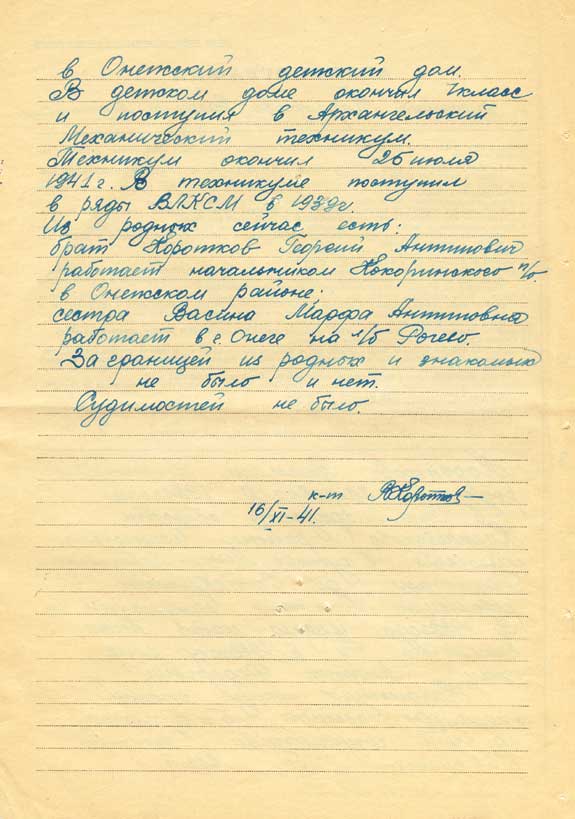 в Онежский детский дом.
В детском доме окончил 7 класс
и поступил в Архангельский
Механический техникум.
Техникум окончил 25 июля
1941 г. В техникуме поступил
в ряды ВЛКСМ в 1939 г.
Из родных сейчас есть:
брат Коротков Георгий Антипович
работает начальником Кокоринского п/о.
в Онежском районе;
сестра Васина Марфа Антиповна
работает в г. Онеге на л/б Рочево.
За границей из родных и знакомых
не было и нет.
Судимостей не было.
к-т Коротков
16/XI-41.